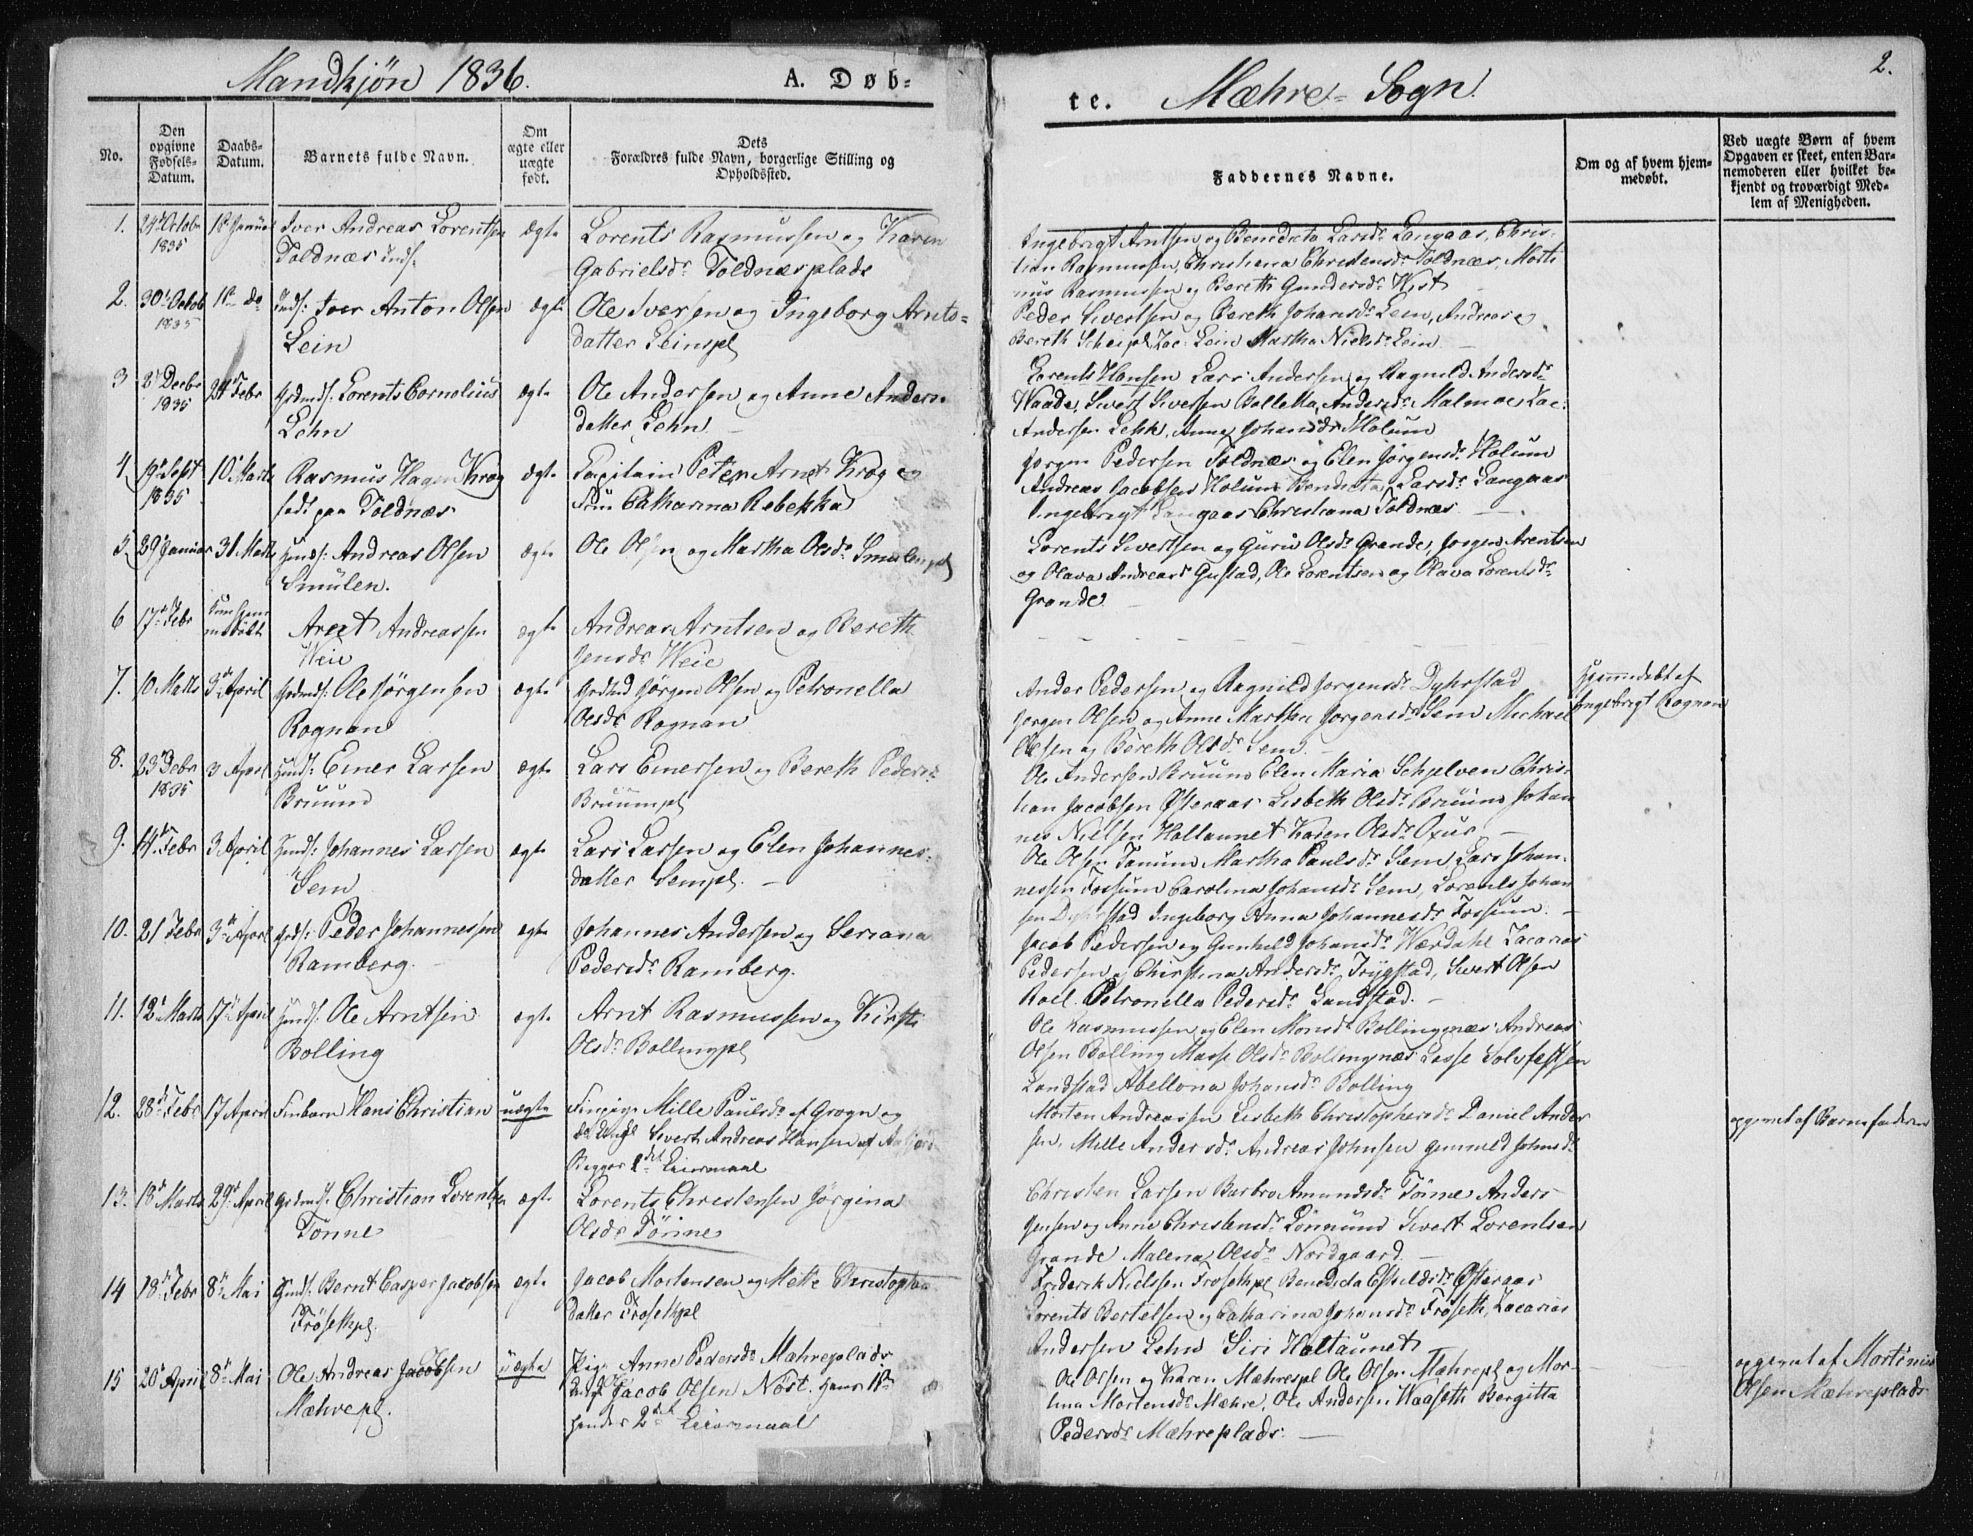 Mandkjön 1836.
A. Døb-
te. Mæhre Sogn.
2.
No.
Den opgivne Fødsels-Datum.
Daabs-Datum.
Barnets fulde Navn.
Om ægte eller uægte født.
Dets Forældres fulde Navn, borgerlige Stilling og Opholdssted.
Faddernes Navne.
Om og af hvem hjem-medøbt.
Ved uægte Børn af hvem Opgaven er skeet, enten Bar-nemoderen eller hvilket be-kjendt og troværdigt Med-lem af Menigheden.
1. 29 Octobr 1835 Iver Andreas Lorentsen ægte Lorents Rasmussen og Karen
Toldnæs Gabrielsdr Toldnæsplads
Ingebrigt Arntsen og Benedicta Larsdr Langaas, Chris-
tian Rasmussen, Christiana Christensdr Toldnæs, Morti
nus Rasmussen og Bereth Gundersdr Wist
2. 30 Octob 1835 1 do Iver Anton Olsen ægte Ole Iversen og Ingeborg Arnts-
Lein datter Leinspl
Peder Sivertsen og Bereth Johansdr Lein, Andreas og
Bereth Lein Martha Nielsdr Lein
3 2 Decbr 1835 24 Febr Lorents Cornelius ægte Ole Andersen og Anne Anders-
Lehn datter Lehn
Lorents Hansen Lars Andersen og Ragnild Andersdr
Waade, Sivert Iversen Bolletta Andersdr Malmoe, Zac:
Andersen Lehn, Anne Johansdr Holum
4 19 Sept 1835 10 Marts Rasmus Hagen Krog ægte Capitain Peter Arnet Krog og
født paa Toldnæs Frue Catharina Rebekka
Jørgen Pedersen Toldnæs og Elen Jørgensdr Holum
Andreas Jacobsen Holum Bendicta Larsdr Langaas
Ingebrigt Langaas Christiana Toldnæs
5 29 Januar 31 Marts Andreas Olsen ægte Ole Olsen og Martha Olsdr Smulenpl
Smülen.
Lorents Sivertsen og Guru Olsdr Grande, Jørgen Arentsen
og Olava Andreasdr Gustad, Ole Lorentsen og Olava Lorentsdr
Grande
6 17 Febr Arent Andreassen ægte Andreas Arntsen og Bereth
Weie Jensdr Weie
7. 10 Marts 3 April Ole Jörgensen ægte Jørgen Olsen og Petronella
Rognan Olsdr Rognan
Ander Pedersen og Ragnild Jørgensdr Dyhrstad
Jørgen Olsen og Anne Martha Jørgensdr Sem Michael
Olsen og Bereth Olsdr Sem.
Hjemmedøbt af
Ingebrigt Rognan
8. 23 Decbr 1835 3 April Einer Larsen ægte Lars Einersen og Bereth Pedersdr
Bruun Bruunpl
Ole Andersen Bruun Elen Maria Schjelven Chris-
tian Jacobsen Østeraas Lisbeth Olsdr Bruun Johan
nes Nielsen Holtaunet Karen Olsdr
9. 14 Febr 3 April Johannes Larsen ægte Lars Larsen og Elen Johannes-
Sem datter Sempl.
Ole Olsen Tanum Martha Paulsdr Sem, Lars Johan-
nessen Fossum Carolina Johansdr Sem, Lorents Johan
sen Dyhrstad Ingeborg Anna Johannesdr Fossum.
10. 21 Febr 3 April Peder Johannessen ægte Johannes Andersen og Seriana
Ramberg Pedersdr Ramberg.
Jacob Pedersen og Gunhild Johansdr Wærdahl Zacarias
Pedersen og Christina Andersdr Trygstad, Sivert Olsen
Roel. Petronella Pedersdr Sandstad.
11. 12 Marts 17 April Ole Arntsen ægte Arnt Rasmussen og Kirsti
Bolling Olsdr Bollingpl
Ole Rasmussen og Elen Monsdr Bollingnæs Andreas
Olsen Bolling Masse Olsdr Bollingnæs Lasse
Landstad Abellona Johansdr Bolling
12. 28 Febr 17 April Finbarn Hans Christian uægte Finpige Mille Paulsdr af Grogn og
Sivert Andreas Hansen af
Begges 1 Leiermaal
Morten Andreassen Lisbeth Christophersdr Daniel Ander
sen, Mille Andersdr Andreas Johnsen Gunnild Johnsdr
opgivet af Barnefaderen
13. 13 Marts 29 April Christian Lorentsen ægte Lorents Christensen Jørgina
Tönne Olsdr Tönne
Christen Larsen Barbro Amundsdr Tönne Anders
Jensen og Anne Christensdr Lönnum Sivert Lorentsen
Grande Malena Olsdr Nordgaard
14 18 Febr 8 Mai Bernt Casper Jacobsen ægte Jacob Mortensen og Mette Christopher
Frösethpl. datter Frosethpl
Friderik Nielsen Frosethpl Benedicta Eskildsdr Østeraas
Lorents Bertelsen og Catharina Johansdr Frøseth, Zacarias
Andersen Lehn Siri Holtaunet
15 20 April 8 Mai Ole Andreas Jacobsen uægte Pige Anne Pedersdr Mæhreplads
Mæhrepl. Jacob Olsen Nöst. Hans 1ste
hendes 2det Leiermaal
Ole Olsen og Karen Mæhrespl Ole Olsen Mæhrepl og Mor-
tina Mortensdr Mæhre, Ole Andersen Waagseth Bergitta
Pedersdr Mæhreplads.
opgivet af Mortinus
Olsen Mæhreplads